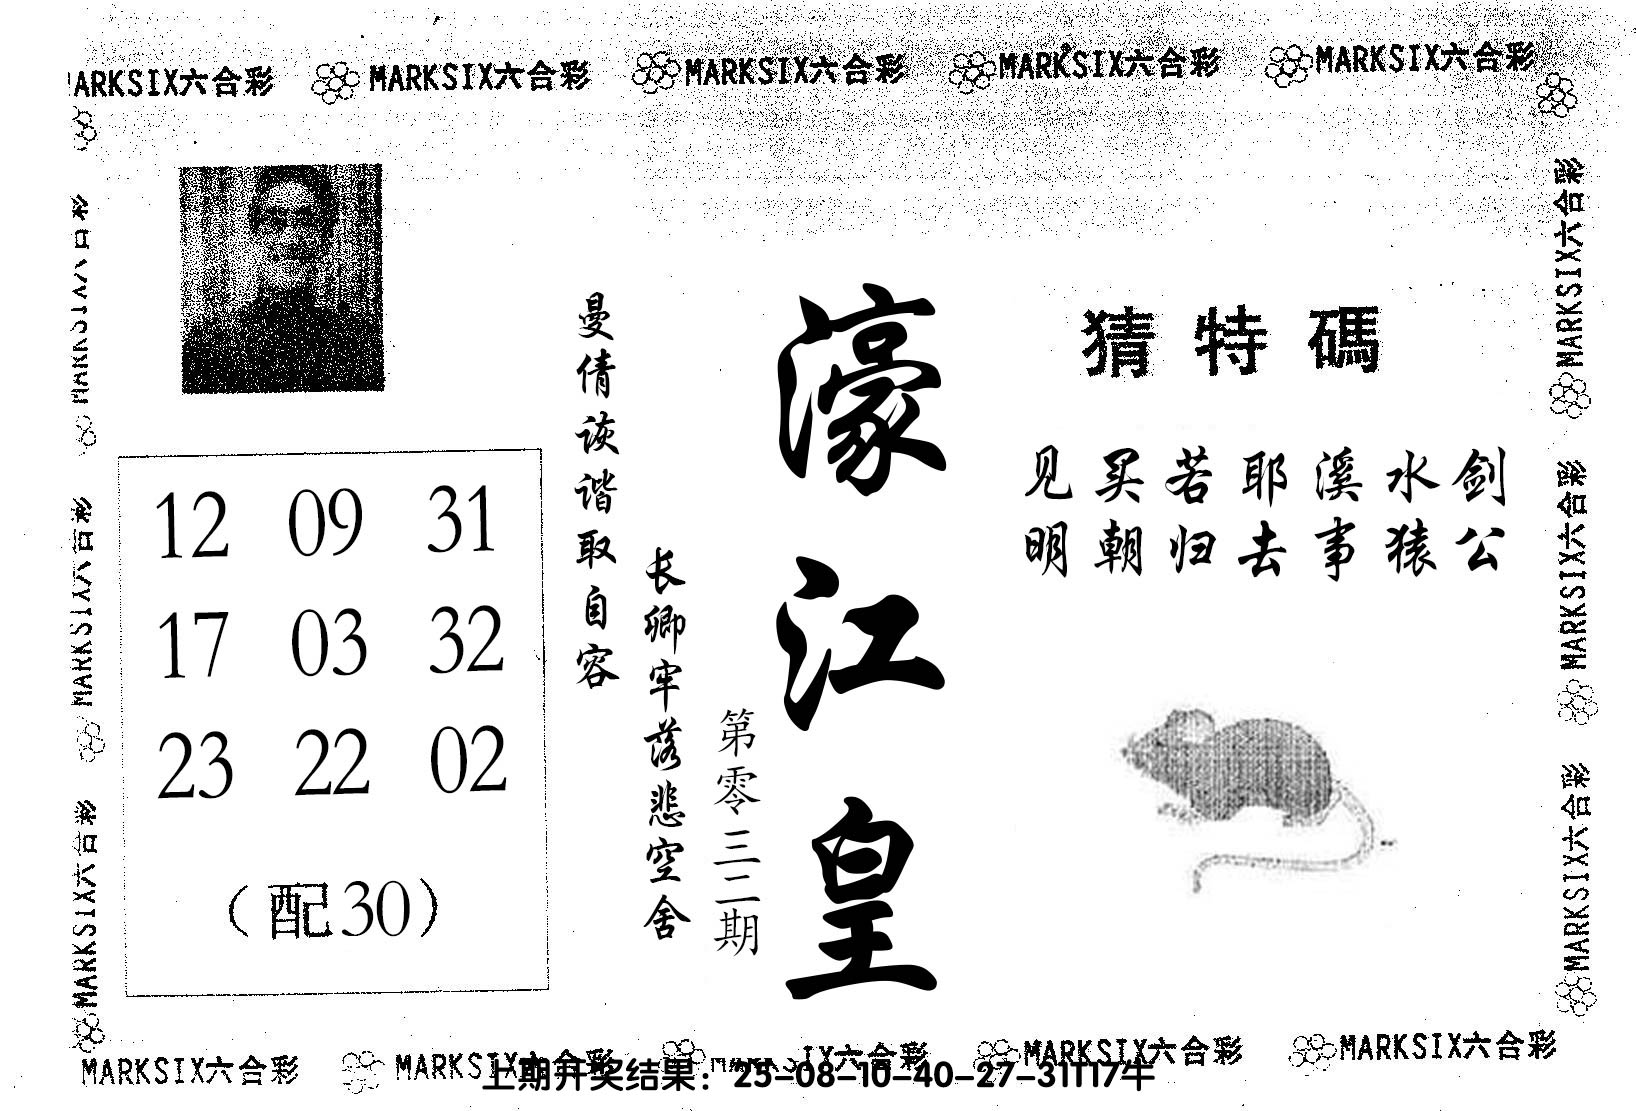 MARKSIX六合彩 MARKSIX六合彩 MARKSIX六合彩 MARKSIX六合彩 MARKSIX六合彩
猜特碼
见买若耶溪水剑
明朝归去事猿公
濠江皇
第零三二期
长卿牢落悲空舍
曼倩诙谐取自容
12 09 31
17 03 32
23 22 02
（配30）
MARKSIX六合彩
MARKSIX六合彩
MARKSIX六合彩
MARKSIX六合彩
MARKSIX六合彩
MARKSIX六合彩
MARKSIX六合彩 MARKSIX六合彩 MARKSIX六合彩 MARKSIX六合彩 MARKSIX六合彩
上期开奖结果：25-08-10-40-27-31T17牛